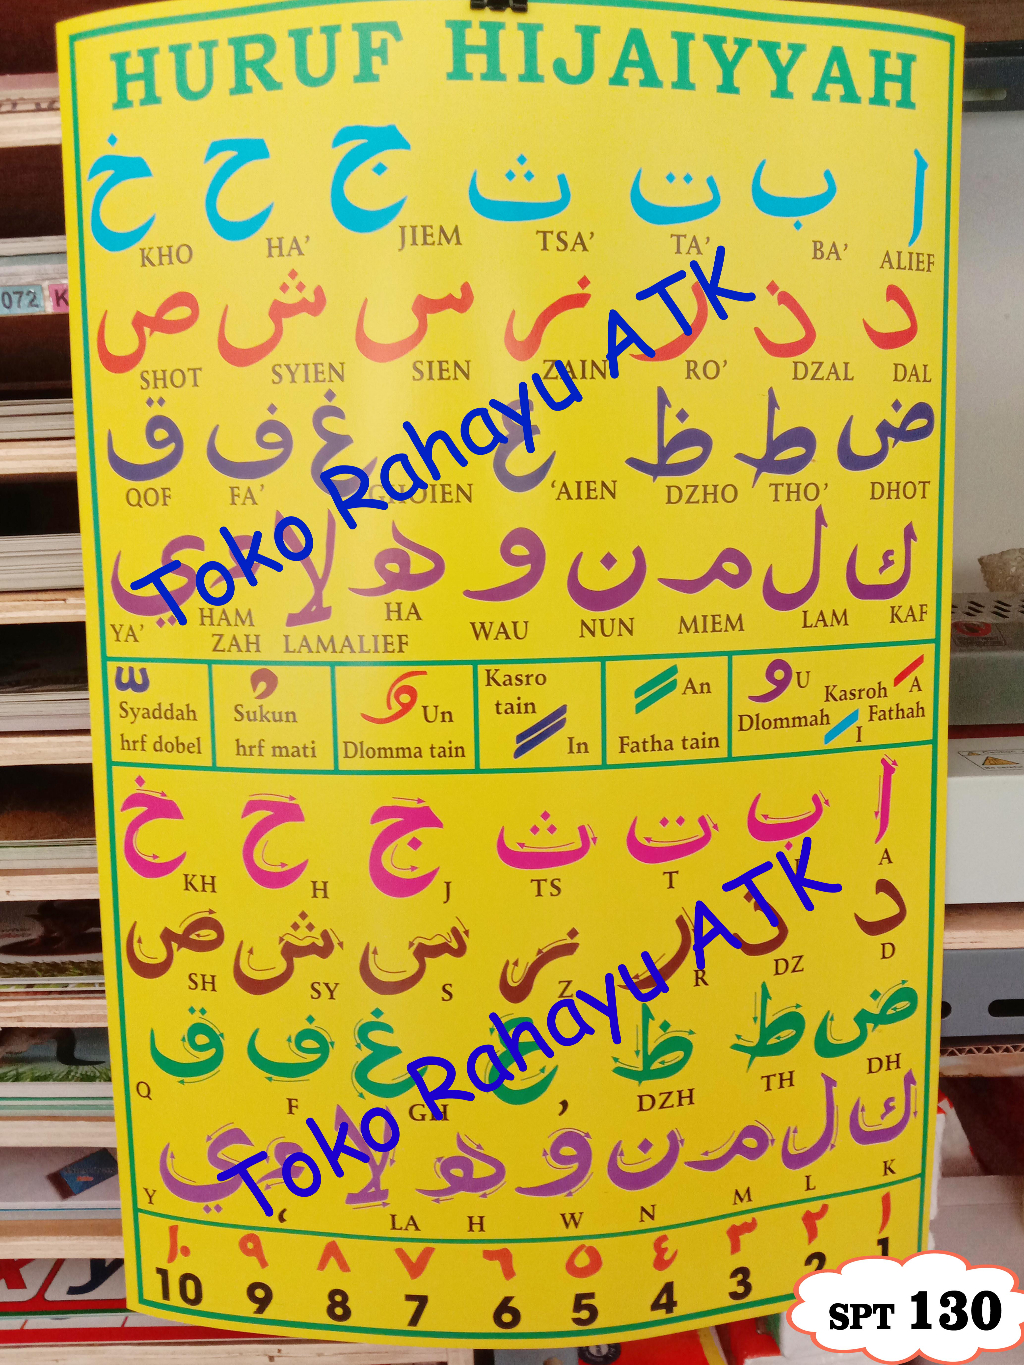 HURUF HIJAIYYAH
ا ب ت ث ج ح خ
ALIEF BA' TA' TSA' JIEM HA' KHO
د ذ ر ز س ش ص
DAL DZAL RO' ZAIN SIEN SYIEN SHOT
ض ط ظ ع غ ف ق
DHOT THO' DZHO 'AIEN GHOIEN FA' QOF
ك ل م ن و ه لا ء ي
KAF LAM MIEM NUN WAU HA LAMALIEF HAM ZAH YA'
Syaddah
hrf dobel
Sukun
hrf mati
Un
Dlomma tain
Kasro
tain
In
An
Fatha tain
U
Dlommah
Kasroh
I
A
Fathah
ا ب ت ث ج ح خ
A T TS J H KH
د ذ ر ز س ش ص
D DZ R Z S SY SH
ض ط ظ ع غ ف ق
DH TH DZH , GH F Q
ك ل م ن و ه لا ء ي
K L M N W H LA ‘ Y
١ ٢ ٣ ٤ ٥ ٦ ٧ ٨ ٩ ١٠
1 2 3 4 5 6 7 8 9 10
Toko Rahayu ATK
Toko Rahayu ATK
SPT 130
072 K